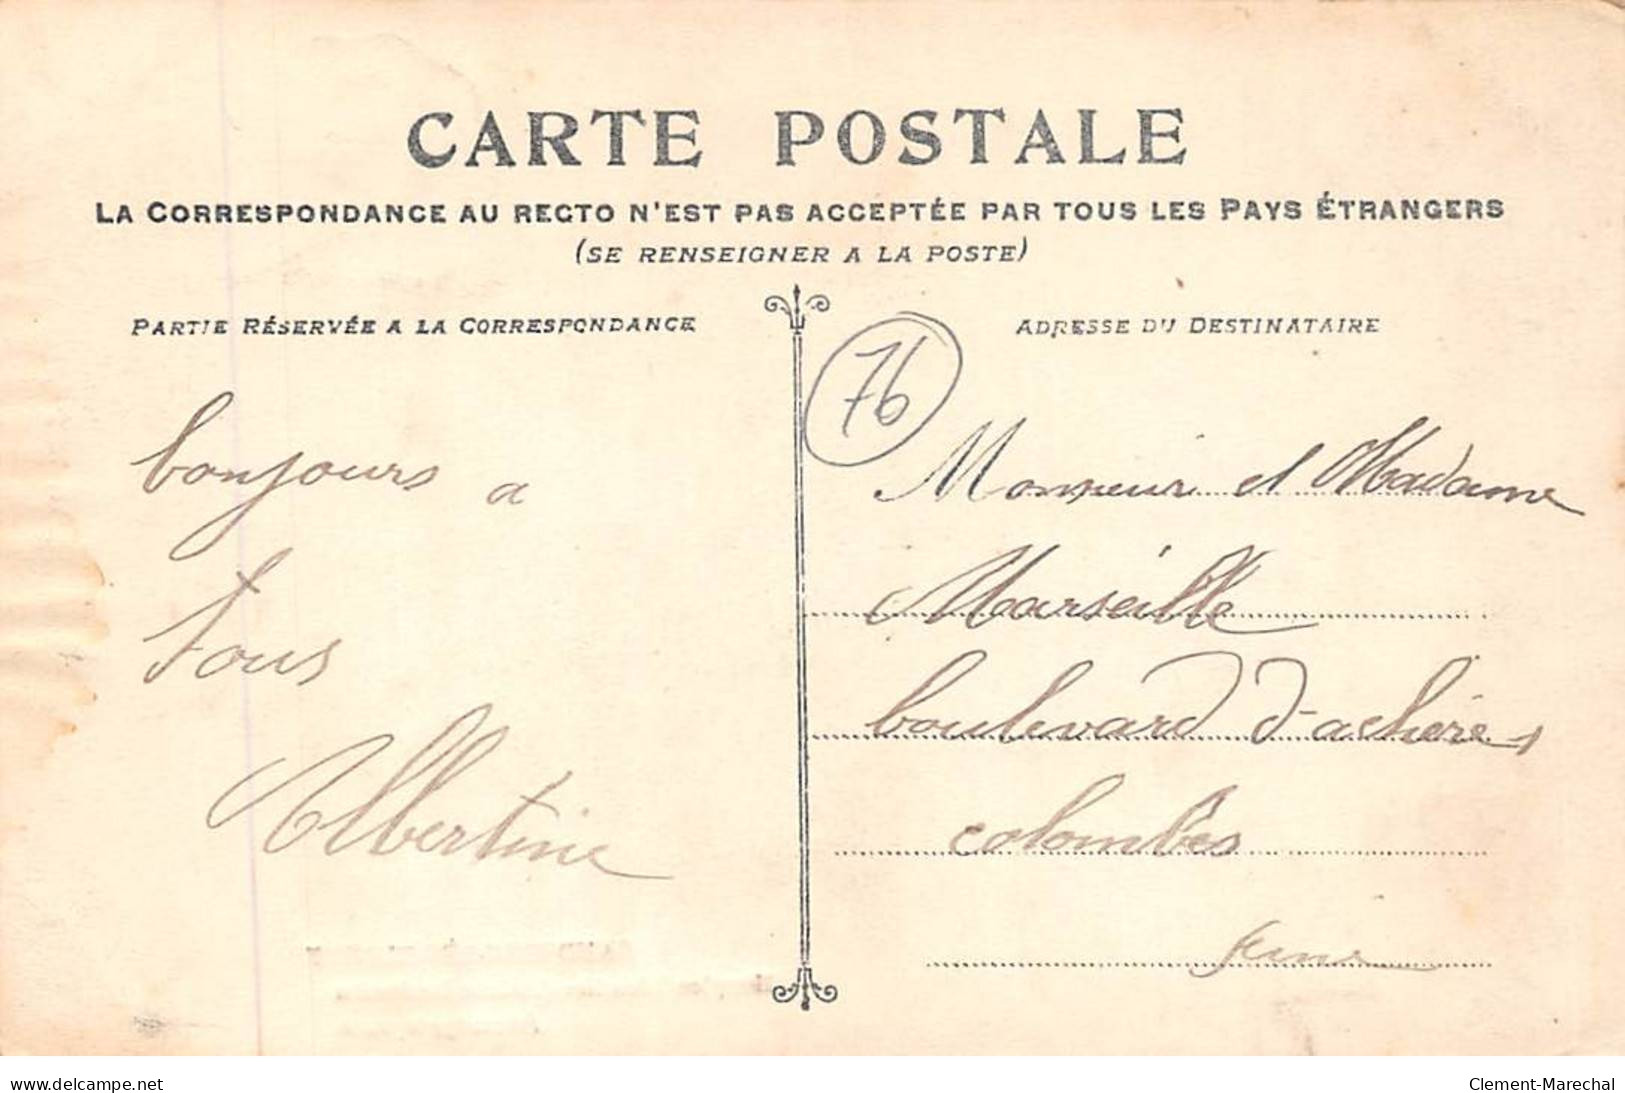 CARTE POSTALE
LA CORRESPONDANCE AU RECTO N'EST PAS ACCEPTÉE PAR TOUS LES PAYS ÉTRANGERS
(SE RENSEIGNER A LA POSTE)
PARTIE RÉSERVÉE A LA CORRESPONDANCE
bonjours a
tous
Albertine
ADRESSE DU DESTINATAIRE
76
Monsieur et Madame
Marseille
boulevard d'achères
colombes
seine
www.delcampe.net
Clement-Marechal